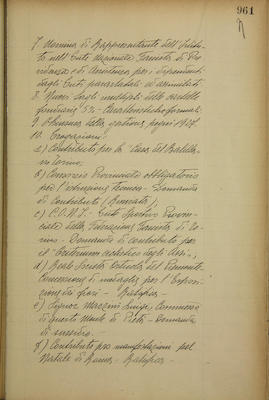 961
7. Nomina di Rappresentante dell'Istitu-
to nell'Ente Nazionale Fascista di Pre-
videnza e di Assistenza per i dipendenti
dagli Enti parastatali ed assimilati
8. Nuovi tagli multipli delle cartelle
fondiarie 5% - Caratteristiche formali.
9. Chiusura della gestione pegni 1937.
10. Erogazioni:
a) Contributo per la "Casa del Balilla"
in Torino;
b) Consorzio Provinciale obbligatorio
per l'istruzione tecnica - Domanda
di contributo (Rinviata);
c) C.O.N.I. - Ente Sportivo Provin-
ciale della Federazione Fascista di Co-
mo - Domanda di contributo per
il "Criterium ciclistico degli
d) Reale Società Orticola del Piemonte.
Concessione di medaglie per l'Esposi-
zione dei fiori - Ratifica -
e) Signor Luigi, Commesso
di questo Monte di Pietà - Domanda
di sussidio. -
f) Contributo pro manifestazioni pel
Natale di Roma. - Ratifica -